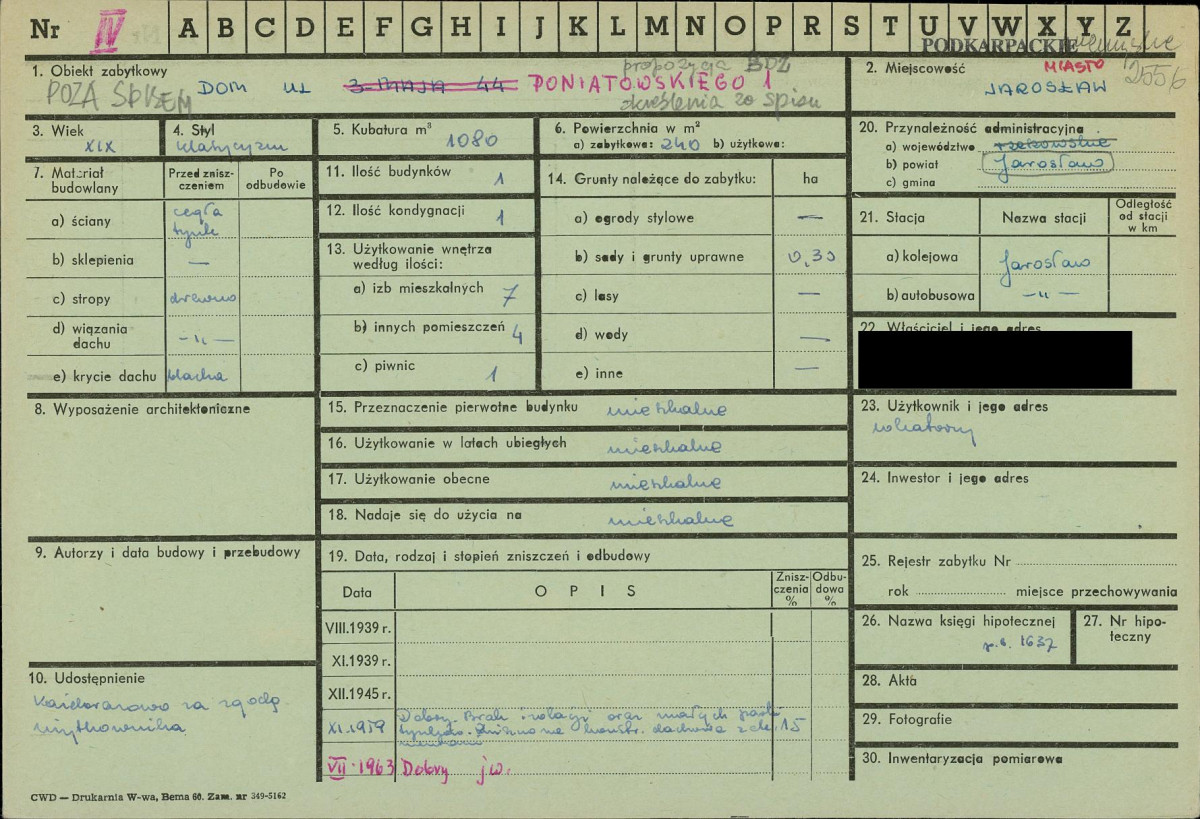 Nr IV A B C D E F G H I J K L M N O P R S T U V W X Y Z
PODKARPACKIE
2556
1. Obiekt zabytkowy
POZA SPISEM
DOM UL 3-MAJA 44 PONIATOWSKIEGO 1
propozycja BDZ
skreślenia ze spisu
2. Miejscowość
MIASTO
JAROSŁAW
3. Wiek
XIX
4. Styl
klasycyzm
5. Kubatura m³
1080
6. Powierzchnia w m²
a) zabytkowa: 240 b) użytkowa:
7. Materiał budowlany
Przed zniszczeniem
Po odbudowie
a) ściany
cegła
tynk
b) sklepienia —
c) stropy drewno
d) wiązania dachu —„—
e) krycie dachu blacha
8. Wyposażenie architektoniczne
9. Autorzy i data budowy i przebudowy
10. Udostępnienie
Każdorazowo za zgodą
użytkownika
11. Ilość budynków 1
12. Ilość kondygnacji 1
13. Użytkowanie wnętrza
według ilości:
a) izb mieszkalnych 7
b) innych pomieszczeń 4
c) piwnic 1
14. Grunty należące do zabytku: ha
a) ogrody stylowe —
b) sady i grunty uprawne 0,30
c) lasy —
d) wody —
e) inne —
15. Przeznaczenie pierwotne budynku mieszkalne
16. Użytkowanie w latach ubiegłych mieszkalne
17. Użytkowanie obecne mieszkalne
18. Nadaje się do użycia na mieszkalne
19. Data, rodzaj i stopień zniszczeń i odbudowy
Data OPIS Zniszczenia % Odbudowa %
VIII.1939 r.
XI.1939 r.
XII.1945 r.
XI.1959 Dobry. Brak izolacji oraz małych partii
tynków. Zniszczona konstr. dachowa 15
VII.1963 Dobry jw.
20. Przynależność administracyjna
a) województwo rzeszowskie
b) powiat Jarosław
c) gmina
21. Stacja Nazwa stacji Odległość od stacji w km
a) kolejowa Jarosław
b) autobusowa —„—
22. Właściciel i jego adres
23. Użytkownik i jego adres
lokatorzy
24. Inwestor i jego adres
25. Rejestr zabytku Nr
rok miejsce przechowywania
26. Nazwa księgi hipotecznej
1637
27. Nr hipoteczny
28. Akta
29. Fotografie
30. Inwentaryzacja pomiarowa
CWD — Drukarnia W-wa, Bema 60. Zam. nr 349-5162